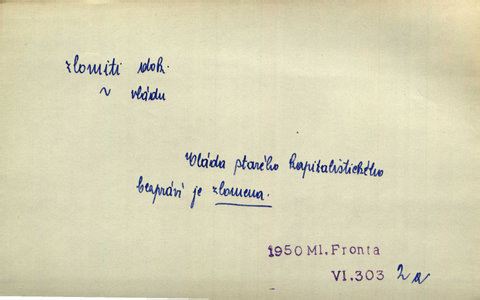 zlomiti dok.
~ vládu
Vláda starého kapitalistického
bezpráví je zlomena.
1950 Ml. Fronta
VI.303 2a